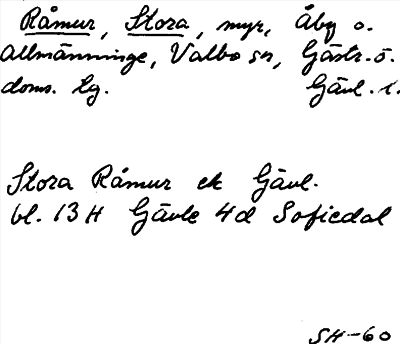 Råmur, Stora, myr, Åby o.
Allmänninge, Valbo sn, Gästr. ö.
doms. tg. Gävl. l.
Stora Råmur ek Gävl.
bl. 13 H Gävle 4d Sofiedal
SH-60